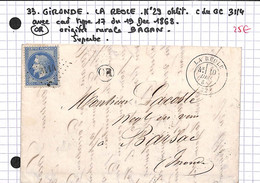 33. GIRONDE. LA REOLE. N°29 oblit. c du GC 3114
avec cad type 17 du 19 Dec 1868.
OR origine rurale BAGAN.
Superbe.
25€
OR
LA REOLE
19
Monsieur Lacoste
negt en vin
à Barsac